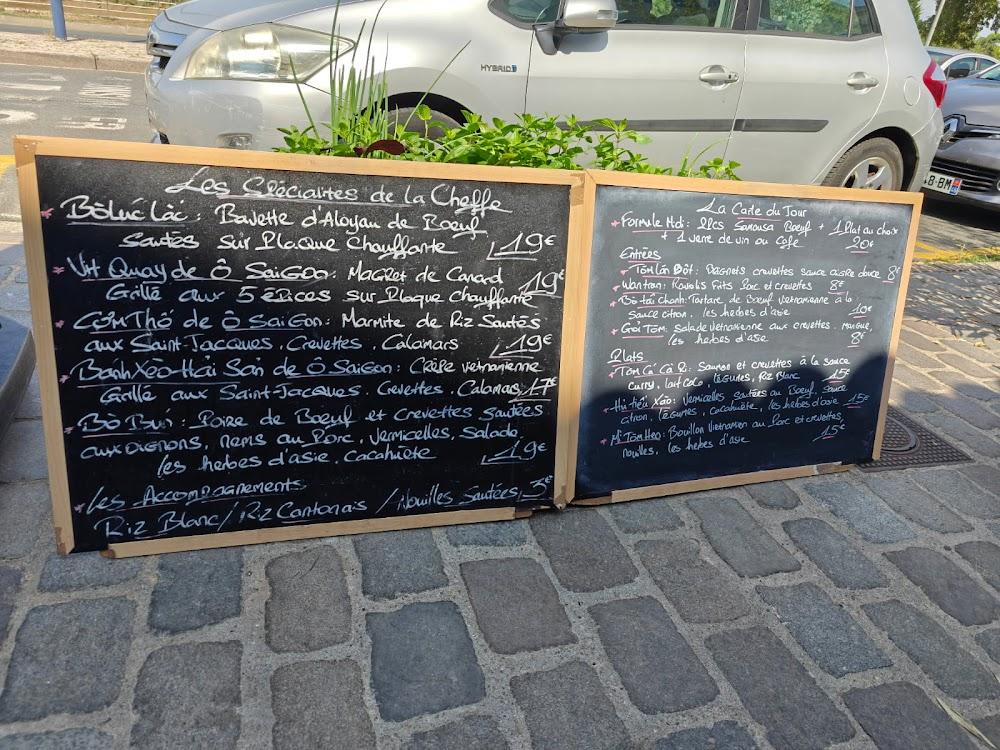 HYBRID
48-BM
Les Spécialités de la Cheffe
Bò Lúc Lắc : Bavette d'Aloyau de Boeuf
Sautés sur Plaque Chauffante 19€
Vit Quay de Ô SaiGon : Magret de Canard
Grillé aux 5 épices sur Plaque Chauffante 19€
Cơm Thố de Ô SaiGon : Marmite de Riz Sautés
aux Saint-Jacques, Crevettes, Calamars 19€
Bánh Xèo Hải Sản de Ô SaiGon : Crêpe vietnamienne
Grillé aux Saint-Jacques, Crevettes, Calamars 17€
Bò Bun : Poire de Boeuf et Crevettes Sautées
aux oignons, nems au Porc, Vermicelles, Salade,
les herbes d'asie, cacahuète 19€
Les Accompagnements
Riz Blanc / Riz Cantonais / Nouilles Sautées 5€
La Carte du Jour
Formule Midi : 2Pcs Samousa Boeuf + 1 Plat au choix
+ 1 verre de vin ou Café 20€
Entrées
Tôm Lăn Bột : Beignets crevettes sauce aigre douce 8€
Wantan : Raviolis Frits Porc et crevettes 8€
Bò tái chanh : Tartare de Boeuf vietnamienne à la
sauce citron, les herbes d'asie 10€
Gỏi Tôm : Salade vietnamienne aux crevettes, mangue,
les herbes d'asie 8€
Plats
Tôm Cá Cà Ri : Saumon et crevettes à la sauce
curry, lait coco, légumes, Riz Blanc 15€
Hủ tiếu Xào : Vermicelles sautées au Boeuf, sauce
citron, légumes, cacahuète, les herbes d'asie 15€
Mì Tôm Heo : Bouillon vietnamien au Porc et crevettes,
nouilles, les herbes d'asie 15€